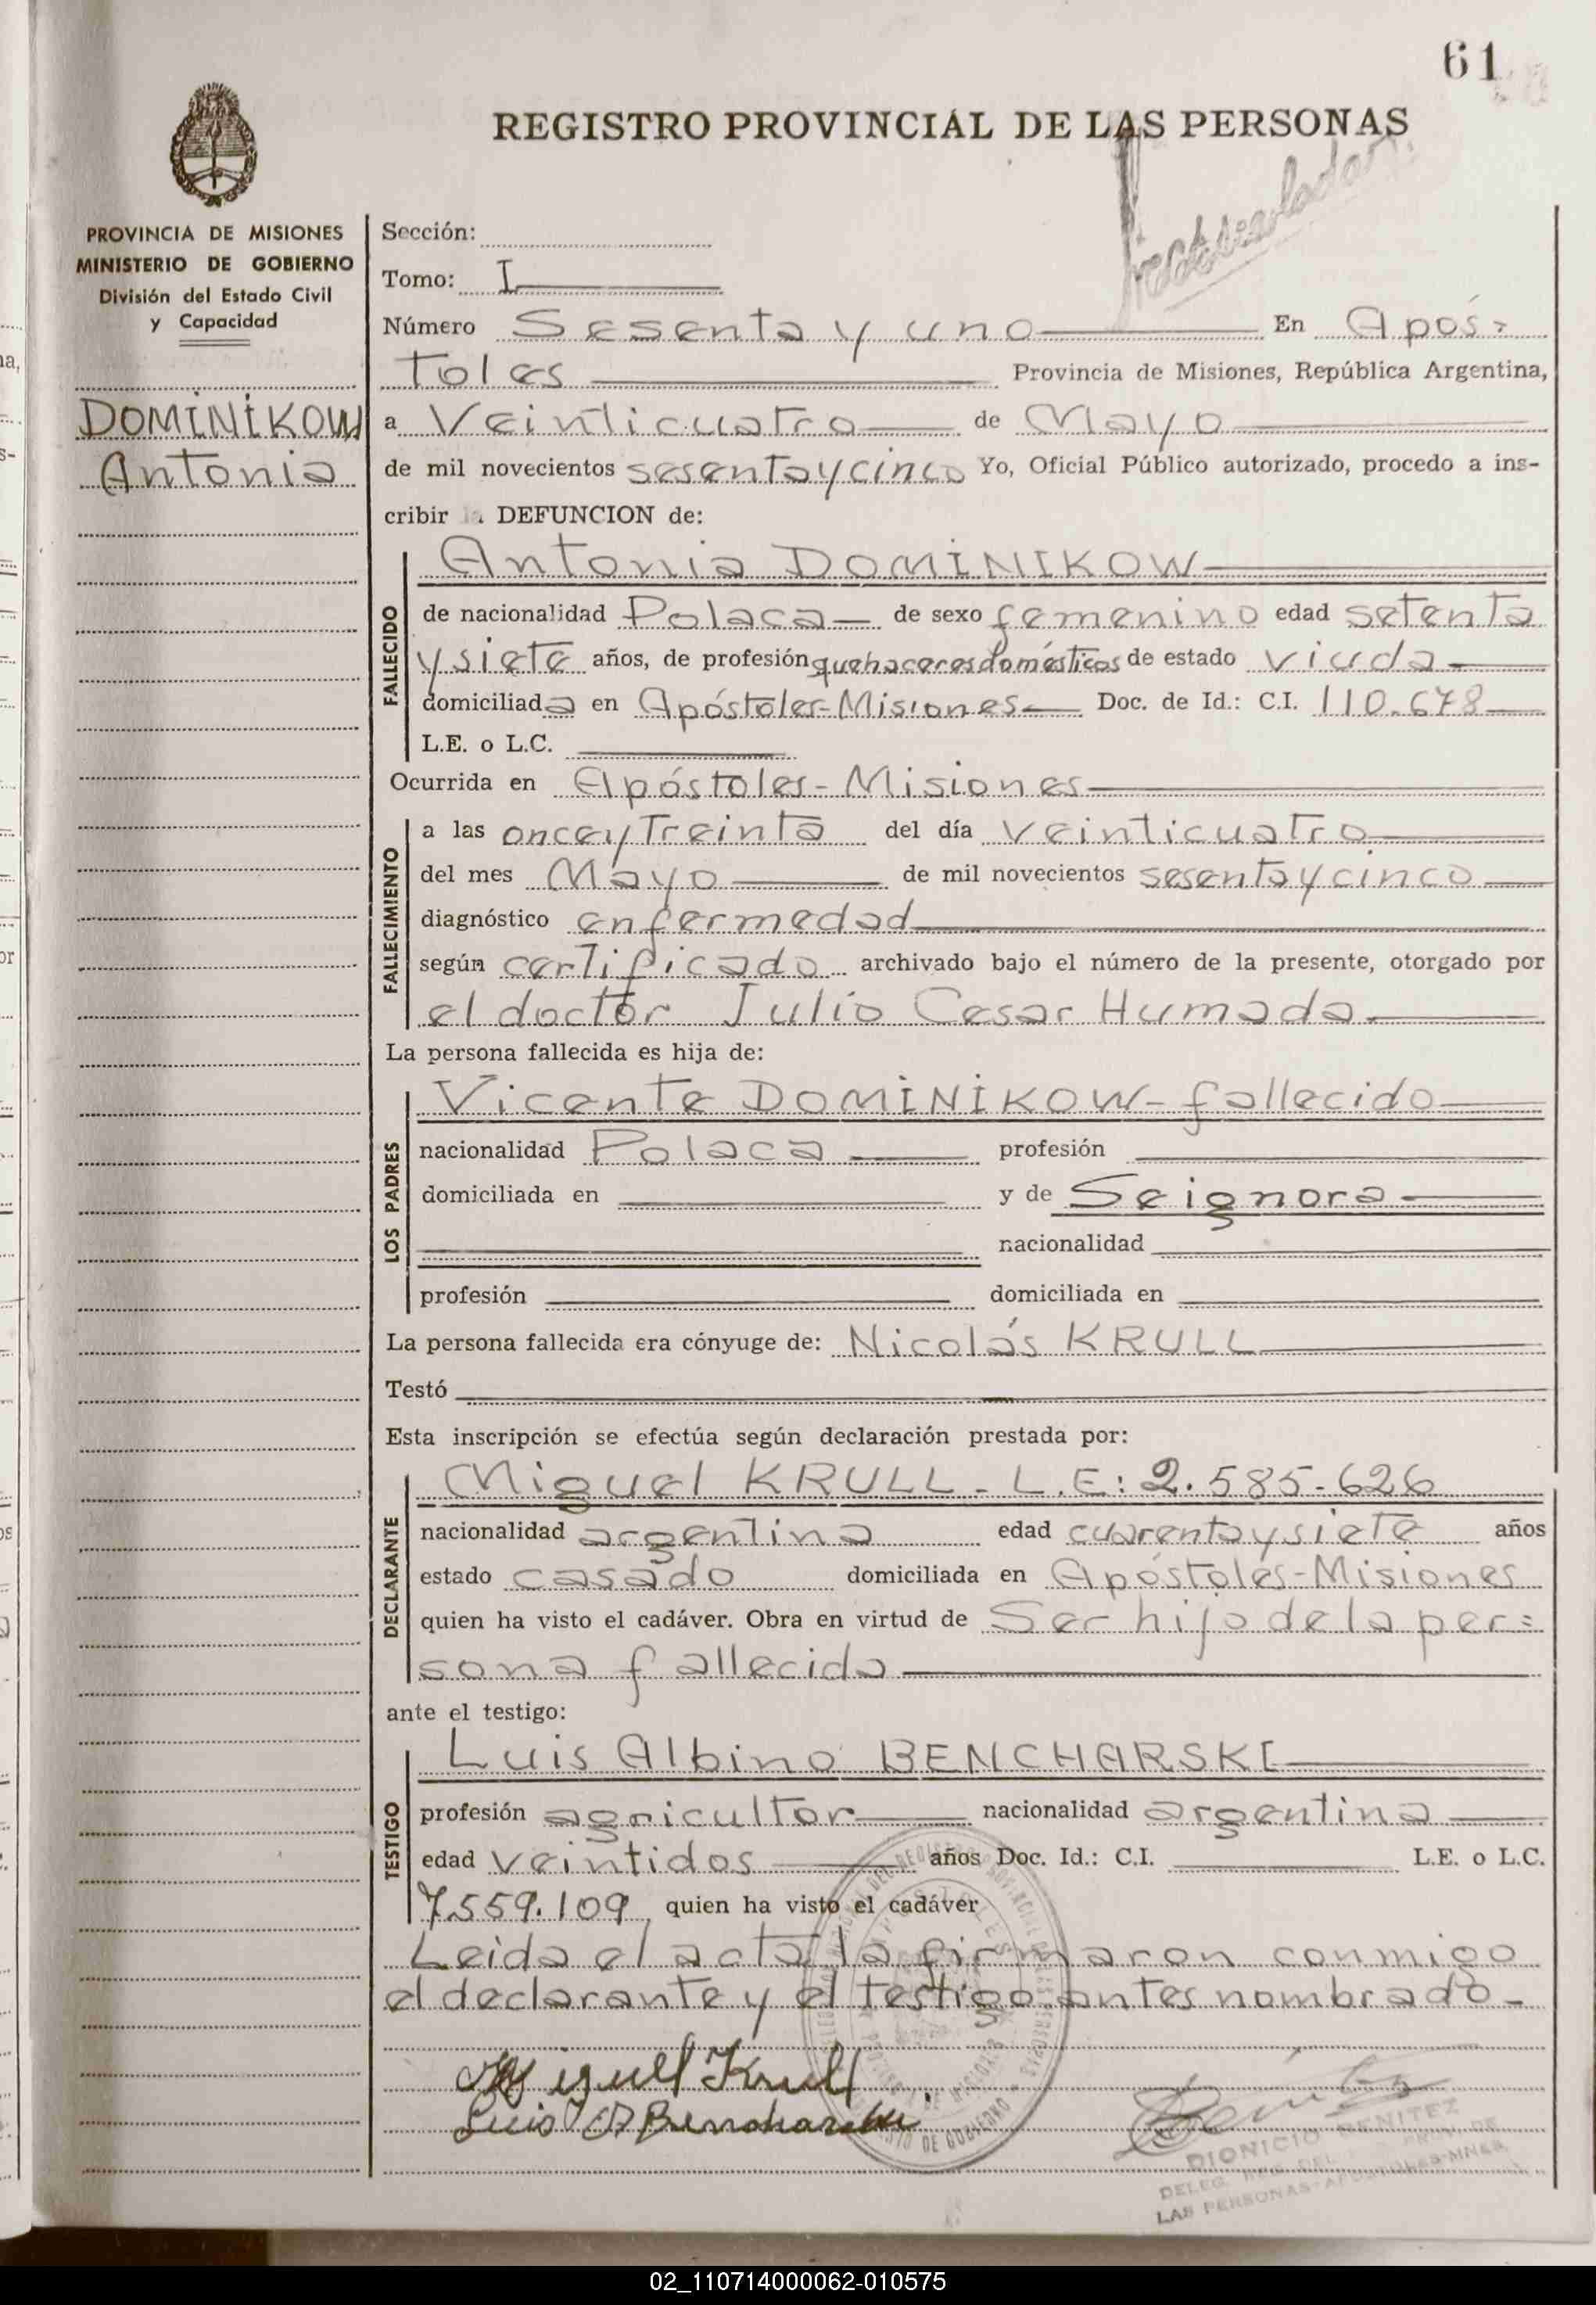 61
REGISTRO PROVINCIAL DE LAS PERSONAS
PROVINCIA DE MISIONES
MINISTERIO DE GOBIERNO
División del Estado Civil
y Capacidad
DOMINIKOW
Antonia
Sección:
Tomo: I
Número Sesenta y uno En Após=
toles Provincia de Misiones, República Argentina,
a Veinticuatro de Mayo
de mil novecientos sesenta y cinco Yo, Oficial Público autorizado, procedo a ins-
cribir la DEFUNCION de:
FALLECIDO
Antonia DOMINIKOW
de nacionalidad Polaca de sexo femenino edad setenta
y siete años, de profesión quehaceres domésticos de estado viuda
domiciliada en Apóstoles-Misiones Doc. de Id.: C.I. 110.678
L.E. o L.C.
Ocurrida en Apóstoles-Misiones
FALLECIMIENTO
a las once y Treinta del día veinticuatro
del mes Mayo de mil novecientos sesenta y cinco
diagnóstico enfermedad
según certificado archivado bajo el número de la presente, otorgado por
el doctor Julio Cesar Humada
La persona fallecida es hija de:
LOS PADRES
Vicente DOMINIKOW- fallecido
nacionalidad Polaca profesión
domiciliada en y de Se ignora
nacionalidad
profesión domiciliada en
La persona fallecida era cónyuge de: Nicolás KRULL
Testó
Esta inscripción se efectúa según declaración prestada por:
DECLARANTE
Miguel KRULL - L.E: 2.585.626
nacionalidad argentina edad cuarenta y siete años
estado casado domiciliada en Apóstoles-Misiones
quien ha visto el cadáver. Obra en virtud de Ser hijo de la per=
sona fallecida
ante el testigo:
TESTIGO
Luis Albino BENCHARSKI
profesión agricultor nacionalidad argentina
edad veintidos años Doc. Id.: C.I. L.E. o L.C.
7.559.109 quien ha visto el cadáver
Leida el acta la firmaron conmigo
el declarante y el testigo antes nombrado-
Miguel Krull
Luis A Bencharski
DIONICIO BENITEZ
DELEG. REG. DEL PROV. DE
LAS PERSONAS-APOSTOLES-MNES.
02_110714000062-010575